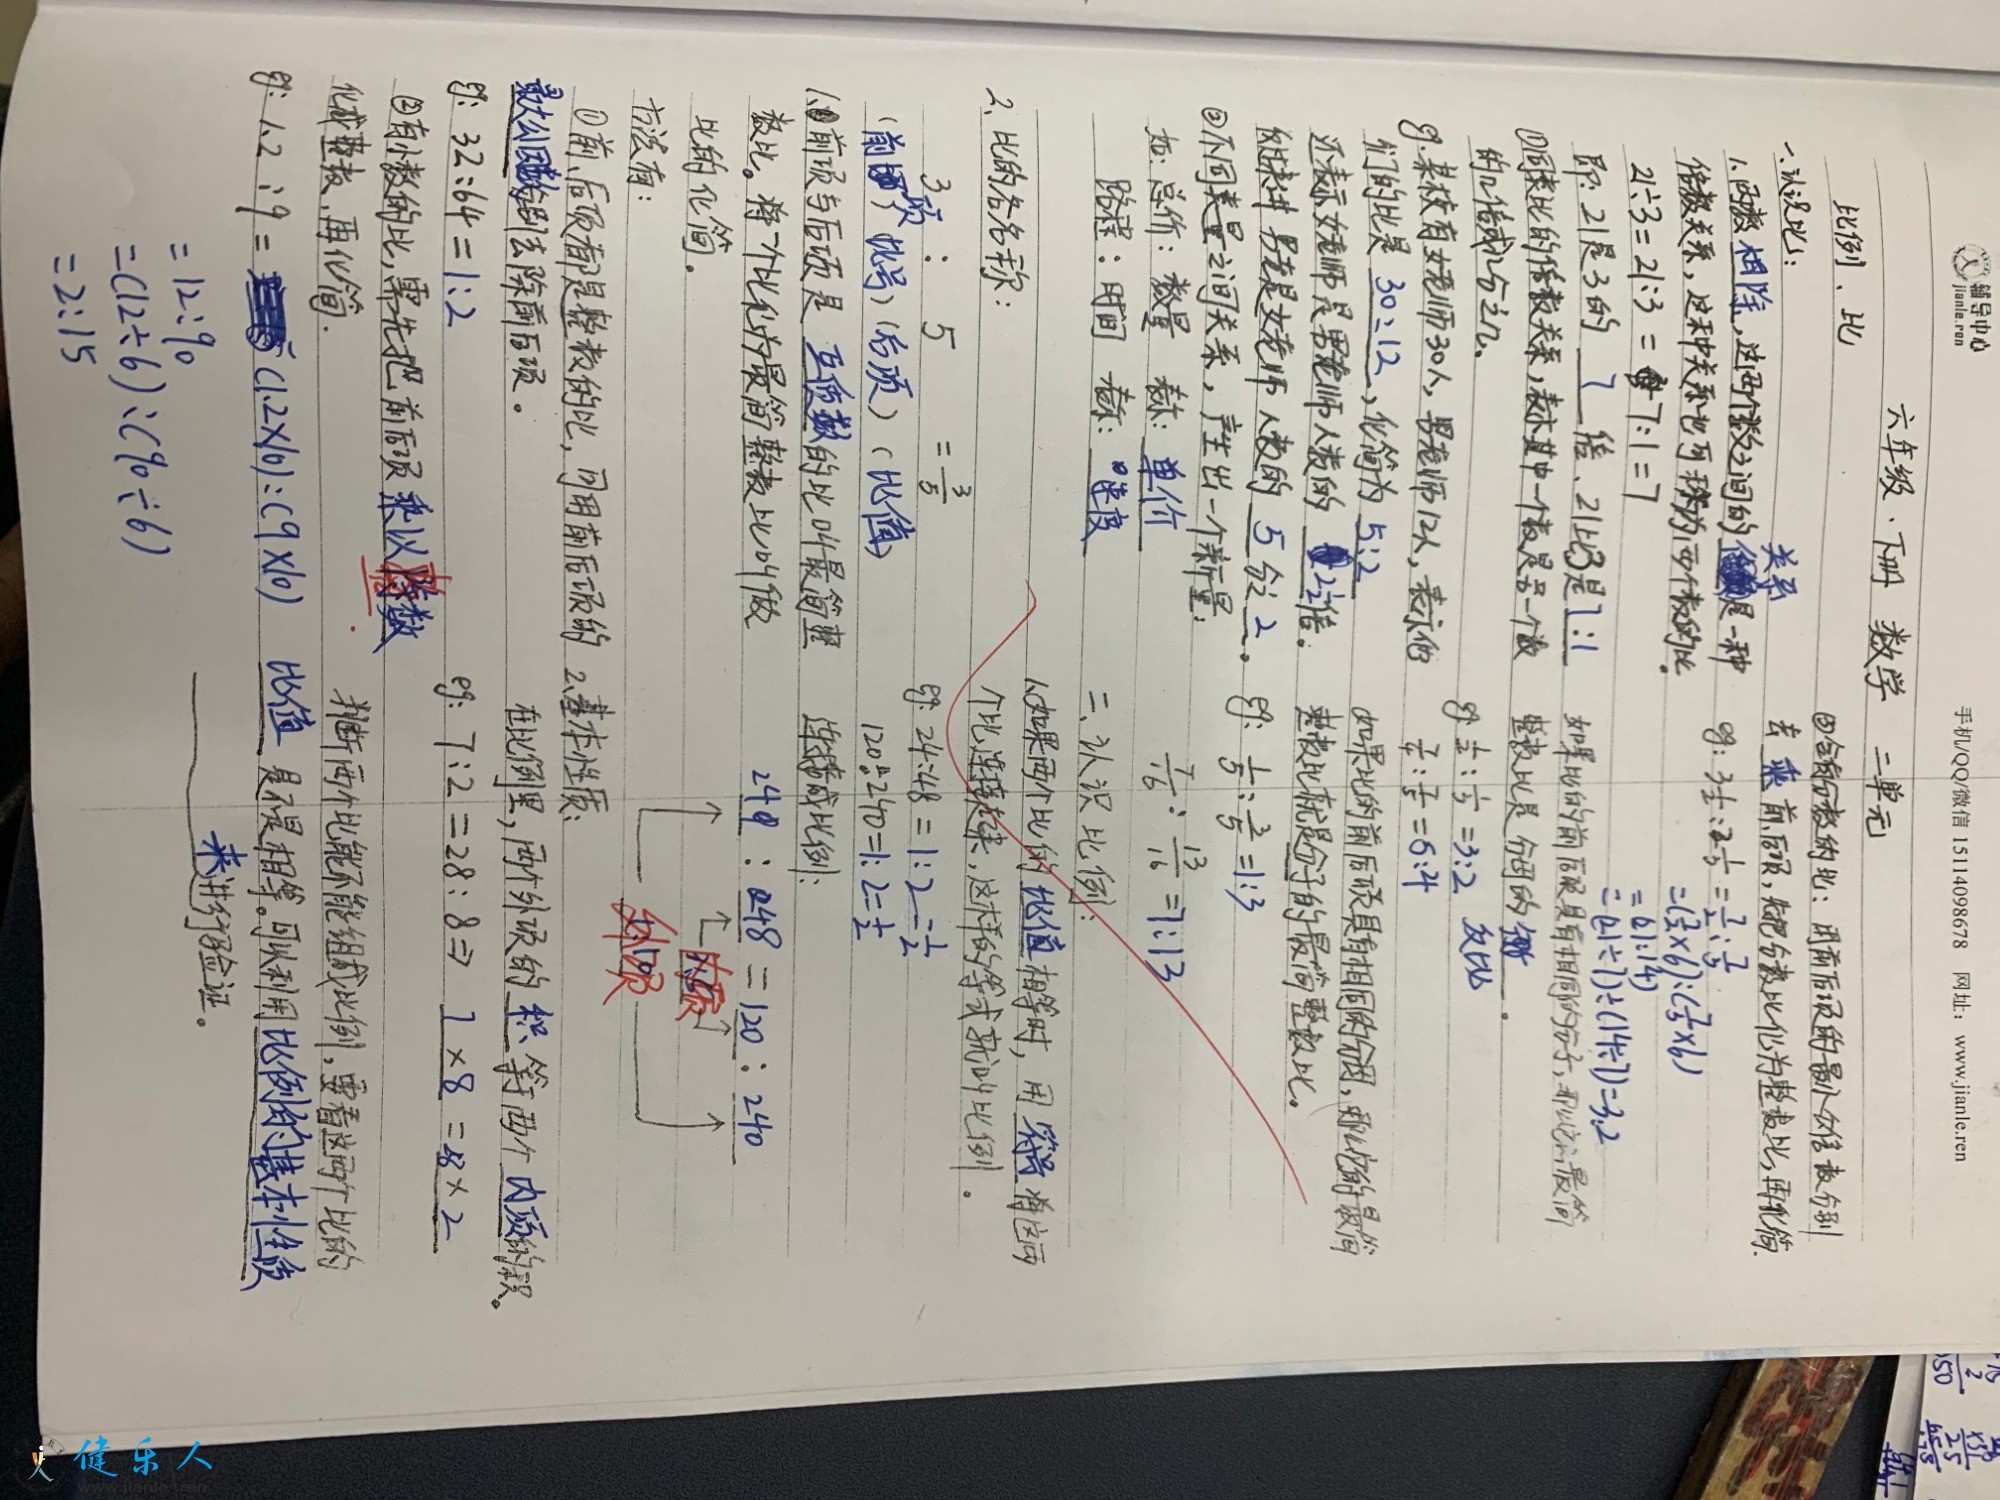 辅导中心
jianle.ren
手机/QQ/微信 15114098678 网址: www.jianle.ren
六年级·下册 数学 二单元
比例、比
一、认识比:
1、两数相除,这两个数之间的关系是一种
倍数关系,这种关系也可称为两个数的比。
21÷3=21:3=7:1=7
即:21是3的 7 倍、21比3是7:1
①同类比的倍数关系,表示其中一个数是另一个数
的几倍或几分之几。
eg.某校有女老师30人,男老师12人,表示他
们的比是 30:12,化简为 5:2
还表示女老师是男老师人数的 2½倍。
男老是女老师人数的 5 分之 2。
②不同类量之间关系,产生出一个新量:
如:总价:数量 表示:单价
路程:时间 表示:速度
2、比的各名称:
3 : 5 = 3/5
(前项)(比号)(后项)(比值)
1、前项与后项是 互质数的比叫最简整
数比。将一个比化为最简整数比叫做
比的化简。
方法有:
①前、后项都是整数的比,可用前后项的
最大公因数 去除前后项。
eg:32:64=1:2
②有小数的比,需先把前后项 乘以 倍数
化成整数,再化简.
eg:1.2:9=(1.2×10):(9×10)
=12:90
=(12÷6):(90÷6)
=2:15
③含有分数的比:用前后项的最小公倍数分别
去乘前后项,先把分数比化为整数比,再化简.
eg:3½:2⅓=7/2:7/3
=(7/2×6):(7/3×6)
=21:14
=(21÷7):(14÷7)=3:2
如果比的前后项是有相同的分子,那么它最简
整数比是 分母的 反比。
eg:½:⅓=3:2
7/4:7/5=5:4
如果比的前后项是有相同的分母,那么它的最简
整数比就是分子的最简整数比。
eg:1/5:3/5=1:3
7/16:13/16=7:13
二、认识比例:
1、如果两个比的比值相等时,用 等号 将这两
个比连接起来,这样的等式就叫比例。
eg:24:48=1:2=½
120:240=1:2=½
连接成比例:
24:48=120:240
内项
外项
2、基本性质:
在比例里,两个外项的 积 等于两个 内项的积。
eg:7:2=28:8⇒ 7×8=28×2
判断两个比能不能组成比例,要看这两个比的
比值 是不是相等。可以利用比例的基本性质
来进行验证。
健乐人
www.jianle.ren